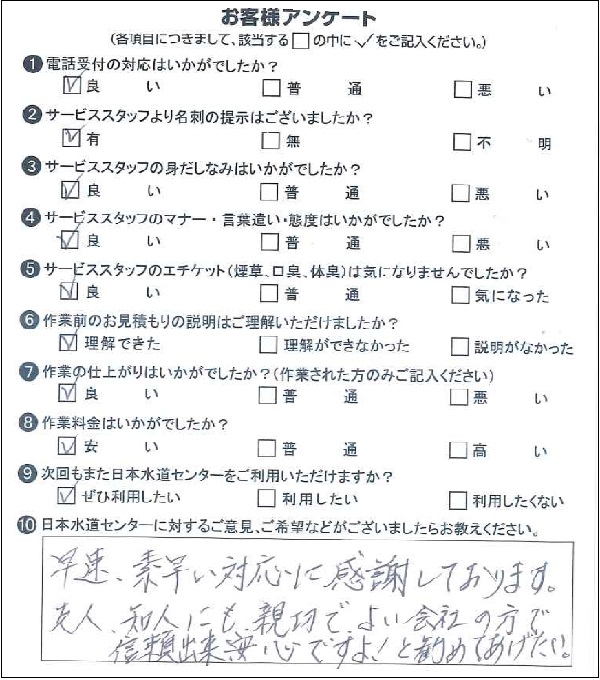 お客様アンケート
(各項目につきまして、該当する□の中に✓をご記入ください。)
❶電話受付の対応はいかがでしたか?
☑良い □普通 □悪い
❷サービススタッフより名刺の提示はございましたか?
☑有 □無 □不明
❸サービススタッフの身だしなみはいかがでしたか?
☑良い □普通 □悪い
❹サービススタッフのマナー・言葉遣い・態度はいかがでしたか?
☑良い □普通 □悪い
❺サービススタッフのエチケット(煙草、口臭、体臭)は気になりませんでしたか?
☑良い □普通 □気になった
❻作業前のお見積もりの説明はご理解いただけましたか?
☑理解できた □理解ができなかった □説明がなかった
❼作業の仕上がりはいかがでしたか?(作業された方のみご記入ください)
☑良い □普通 □悪い
❽作業料金はいかがでしたか?
☑安い □普通 □高い
❾次回もまた日本水道センターをご利用いただけますか?
☑ぜひ利用したい □利用したい □利用したくない
❿日本水道センターに対するご意見、ご希望などがございましたらお教えください。
早速、素早い対応に感謝しております。
友人、知人にも、親切で、よい会社の方で
信頼出来安心ですよ!と勧めてあげたい。